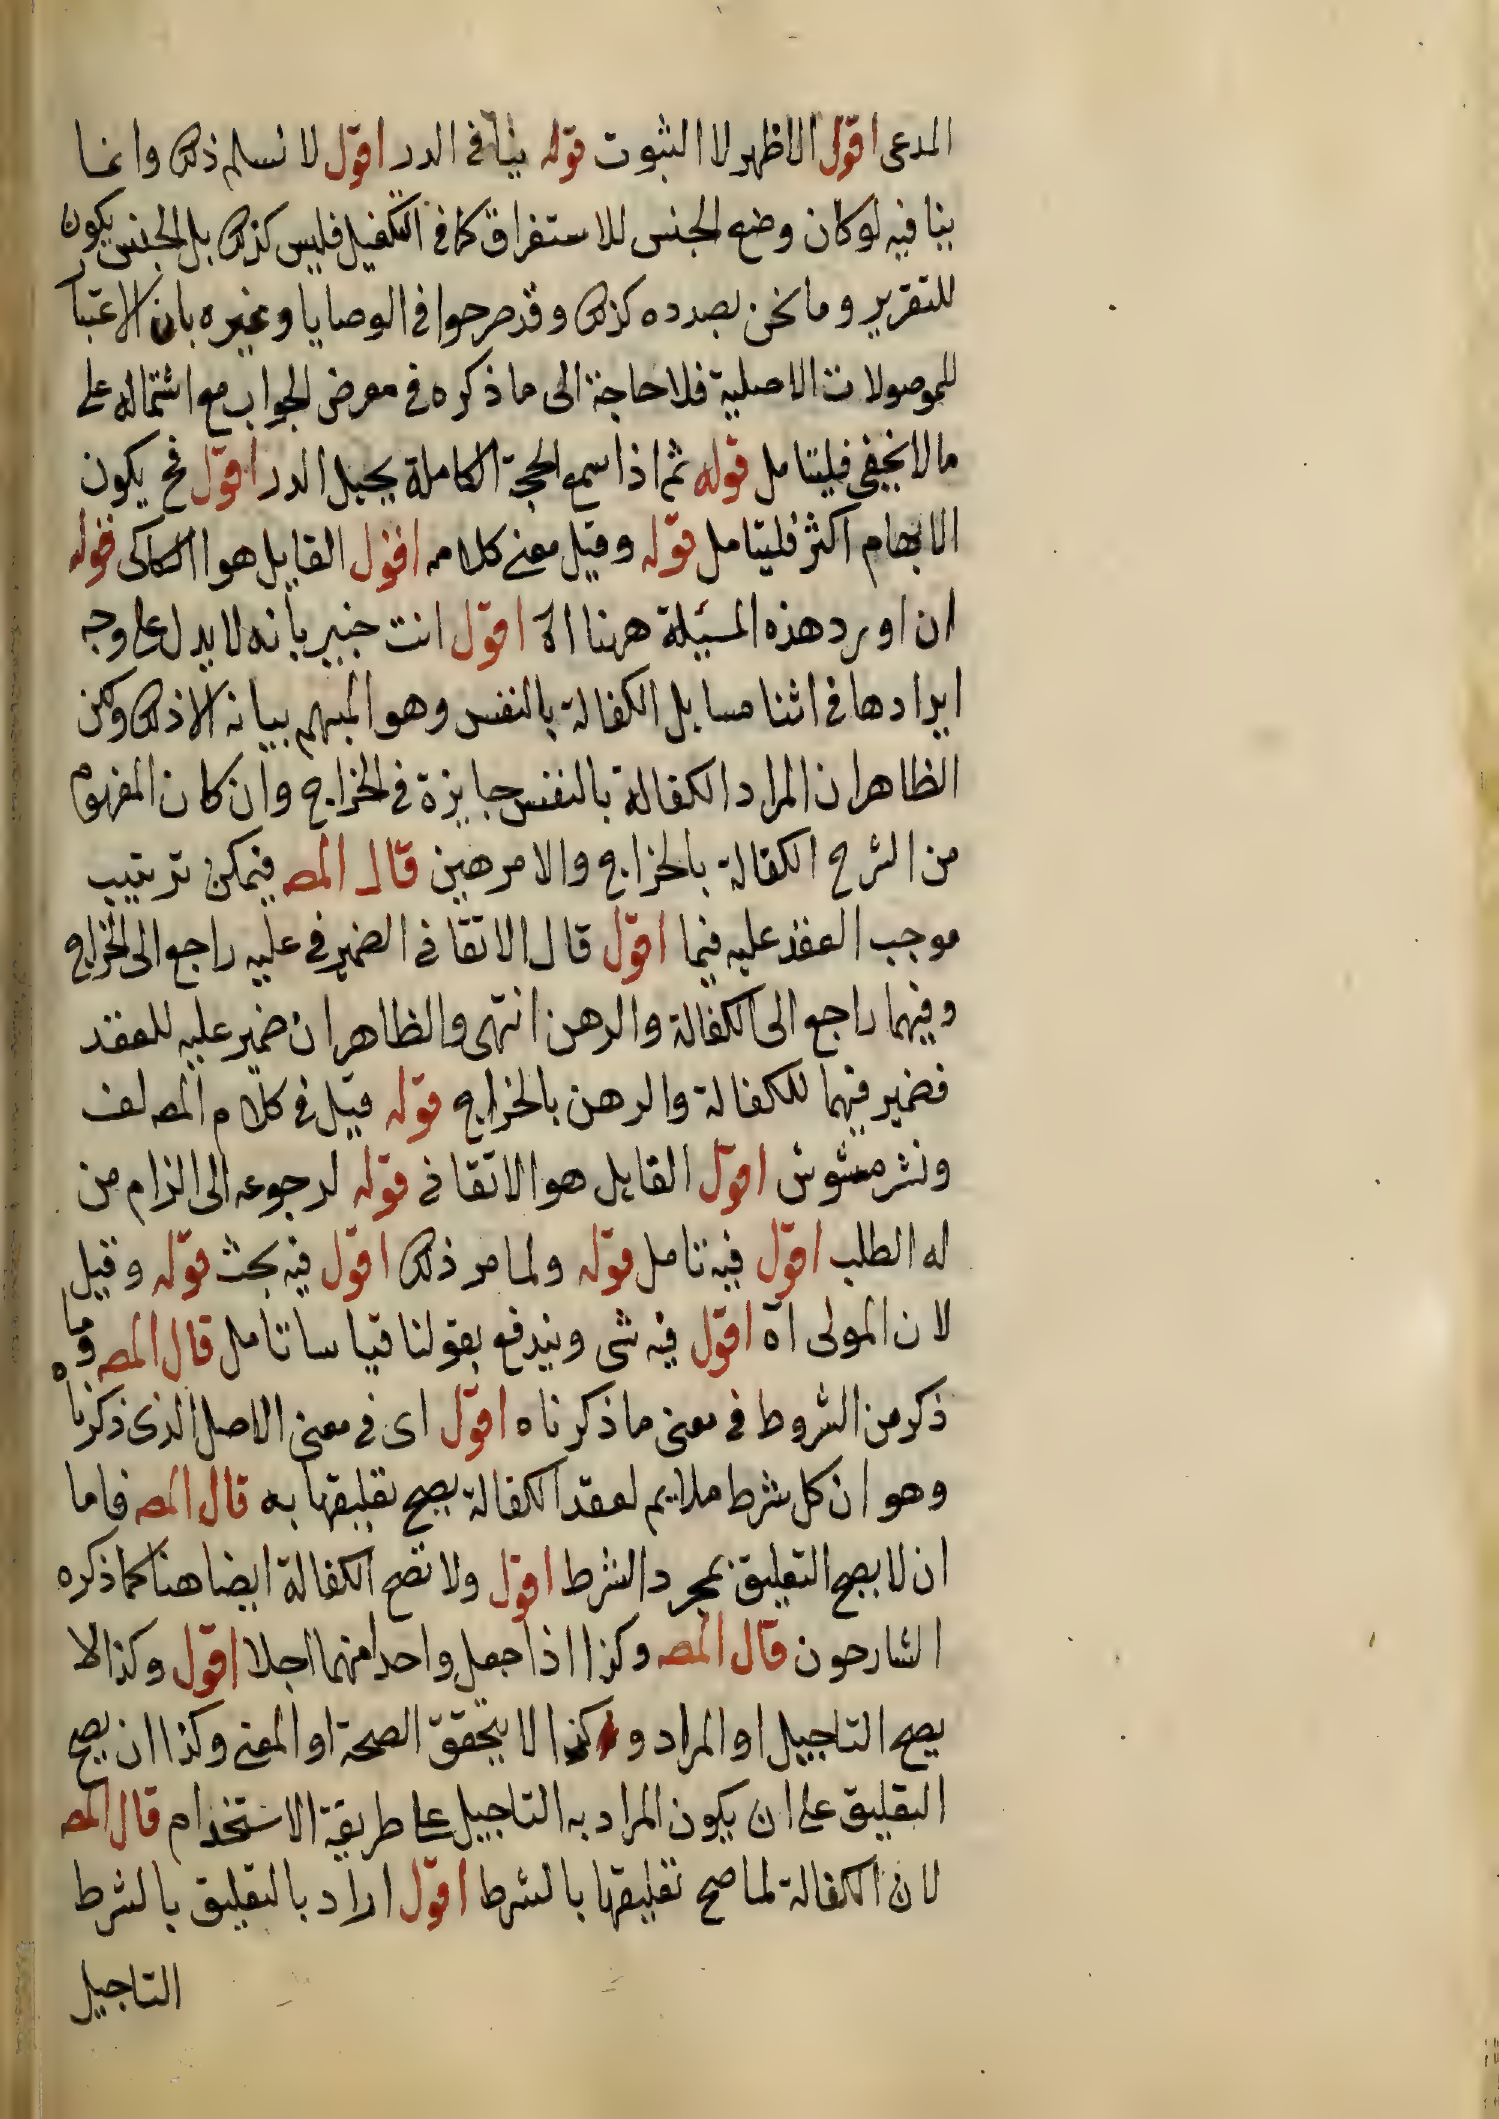 المدعى اقول الاظهر لا الثبوت قوله ينافى الدر اقول لا نسلم ذلك وانما
ينافيه لوكان وضع الجنس للاستغراق كما فى التكفيل فليس كذلك بل الجنس يكون
للتقرير وما نحن بصدده كذلك وقد صرحوا فى الوصايا وغيره بان الاعتبار
للموصولات الاصلية فلا حاجة الى ما ذكره فى معرض الجواب مع اشتماله على
مالا يخفى فليتامل قوله ثم اذا سمع الحجة الكاملة يحيل الدر اقول فح يكون
الابهام اكثر فليتامل قوله وقيل معنى كلامه اقول القايل هو الكاكى قوله
ان اورد هذه المسيلة ههنا اه اقول انت خبير بانه لا يدل على وجه
ايرادها فى اثنا مسايل الكفالة بالنفس وهو المبهم بيانه الا ذلك ولكن
الظاهر ان المراد الكفالة بالنفس جايزة فى الخراج وان كان المفهوم
من الشرح الكفالة بالخراج والامر هين قال المص فيمكن ترتيب
موجب العقد عليه فيما اقول قال الاتقانى الضمير فى عليه راجع الى الخراج
وفيهما راجع الى الكفالة والرهن انتهى والظاهر ان ضمير عليه للعقد
فضمير فيهما للكفالة والرهن بالخراج قوله قيل فى كلام المص لف
ونشر مشوش اقول القايل هو الاتقانى قوله لرجوعه الى الزام من
له الطلب اقول فيه تامل قوله ولما مر ذلك اقول فيه بحث قوله وقيل
لان المولى اه اقول فيه شى ويندفع بقولنا قياسا تامل قال المص وما
ذكر من الشروط فى معنى ما ذكرناه اقول اى فى معنى الاصل الذى ذكرناه
وهو ان كل شرط ملايم لعقد الكفالة يصح تعليقها به قال المص فاما
ان لا يصح التعليق بمجرد الشرط اقول ولا تصح الكفالة ايضا هنا كما ذكره
الشارحون قال المص وكذا اذا جعل واحد منهما اجلا اقول وكذا لا
يصح التاجيل او المراد وكذا لا يتحقق الصحة او المعنى وكذا ان يصح
التعليق على ان يكون المراد به التاجيل على طريقة الاستخدام قال المص
لان الكفالة لما صح تعليقها بالشرط اقول اراد بالتعليق بالشرط
التاجيل